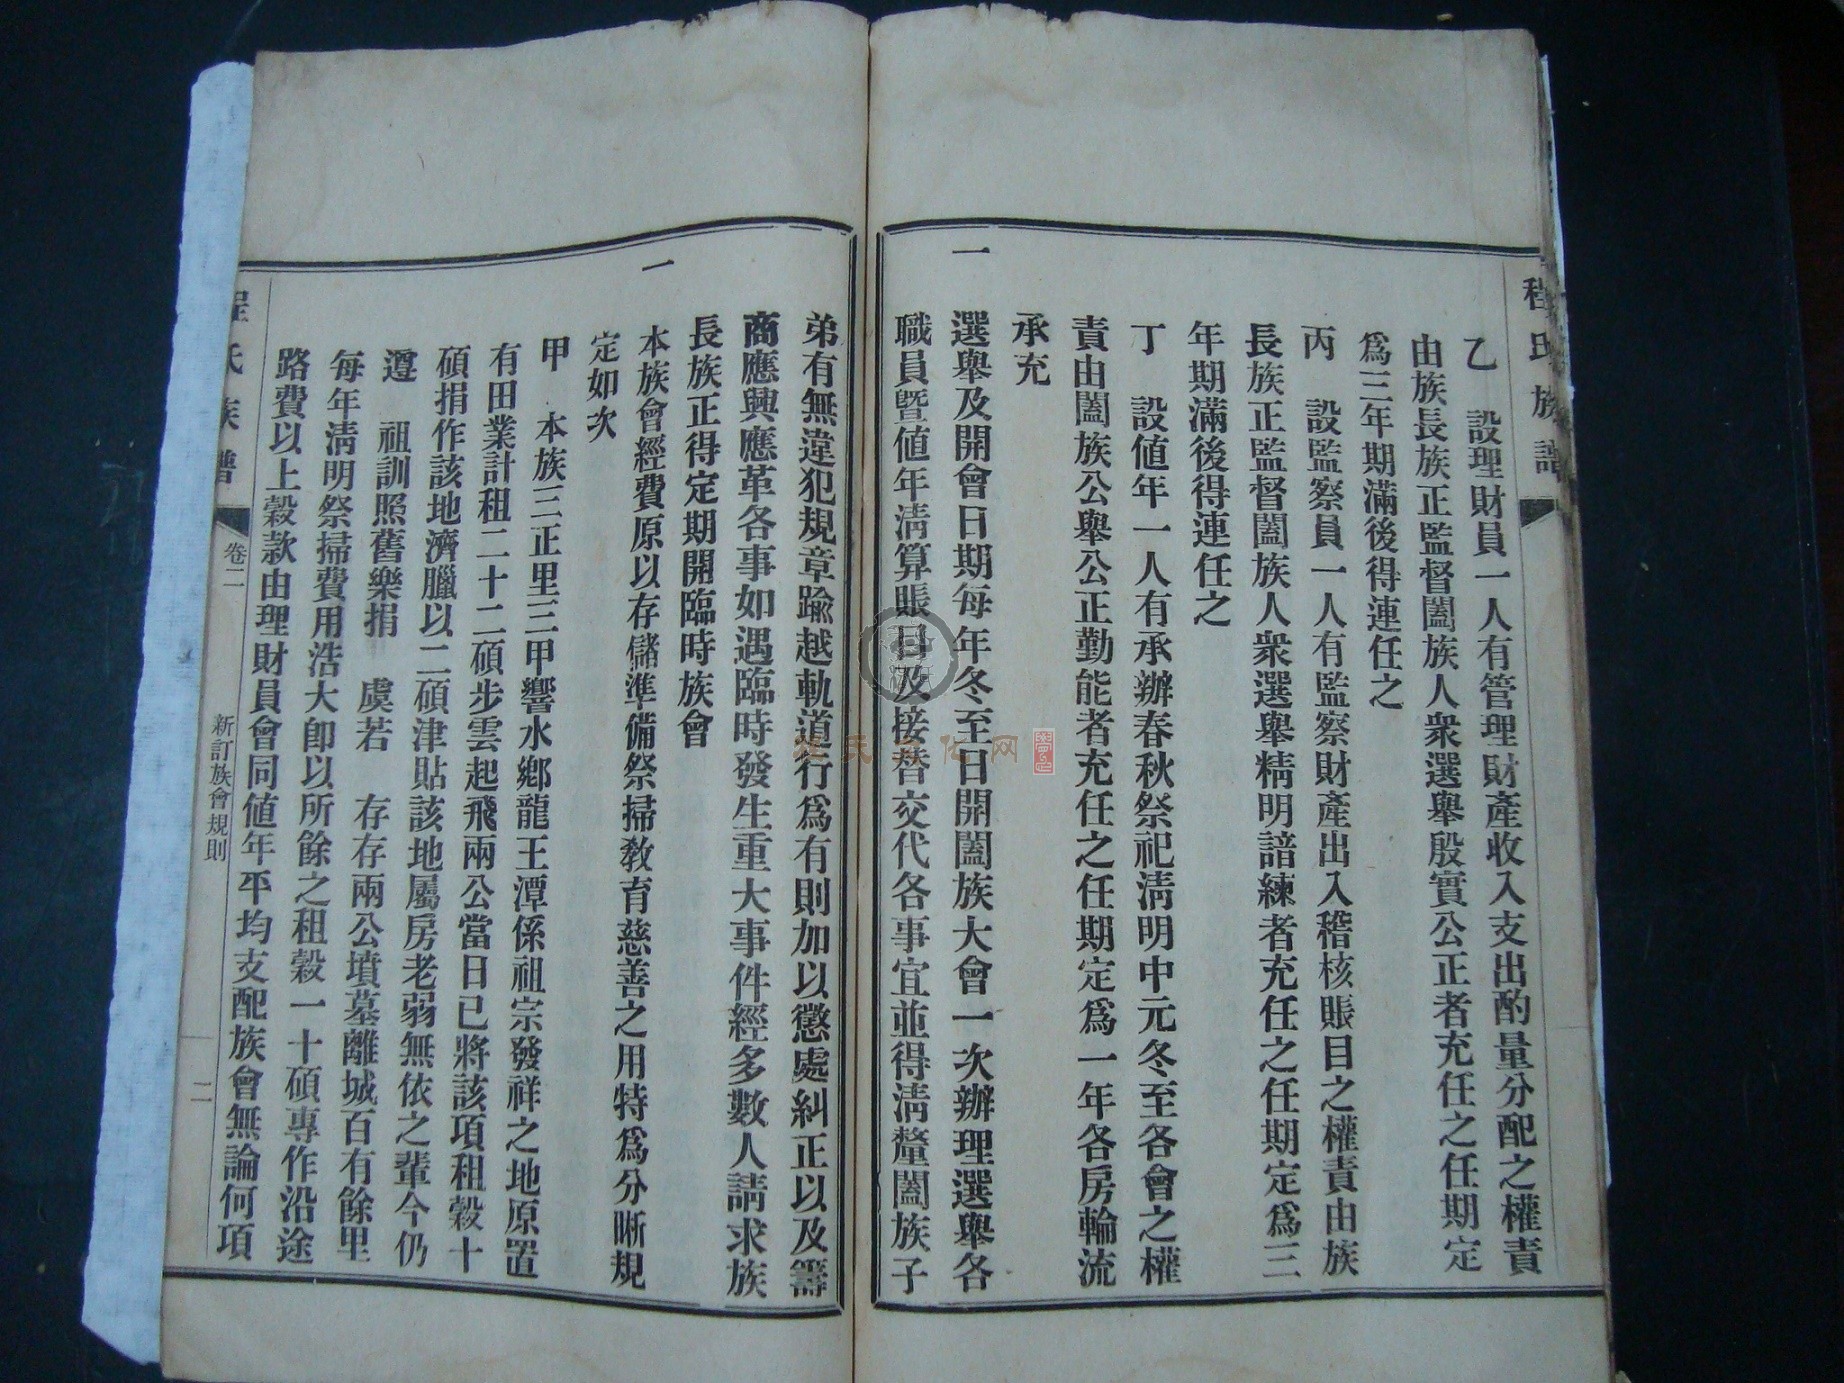 程氏族譜
乙　設理財員一人有管理財產收入支出酌量分配之權責
由族長族正監督闔族人衆選舉殷實公正者充任之任期定
爲三年期滿後得連任之
丙　設監察員一人有監察財產出入稽核賬目之權責由族
長族正監督闔族人衆選舉精明諳練者充任之任期定爲三
年期滿後得連任之
丁　設值年一人有承辦春秋祭祀淸明中元冬至各會之權
責由闔族公舉公正勤能者充任之任期定爲一年各房輪流
承充
一　選舉及開會日期每年冬至日開闔族大會一次辦理選舉各
職員暨值年淸算賬目及接替交代各事宜並得淸釐闔族子
弟有無違犯規章踰越軌道行爲有則加以懲處糾正以及籌
商應興應革各事如遇臨時發生重大事件經多數人請求族
長族正得定期開臨時族會
一　本族會經費原以存儲準備祭掃敎育慈善之用特爲分晰規
定如次
甲　本族三正里三甲響水鄉龍王潭係祖宗發祥之地原置
有田業計租二十二碩步雲起飛兩公當日已將該項租穀十
碩捐作該地濟臘以二碩津貼該地屬房老弱無依之輩今仍
遵　祖訓照舊樂捐　虞若　存存兩公墳墓離城百有餘里
每年淸明祭掃費用浩大卽以所餘之租穀一十碩專作沿途
路費以上穀款由理財員會同值年平均支配族會無論何項
程氏族譜
卷二
新訂族會規則
二
楚天文化网